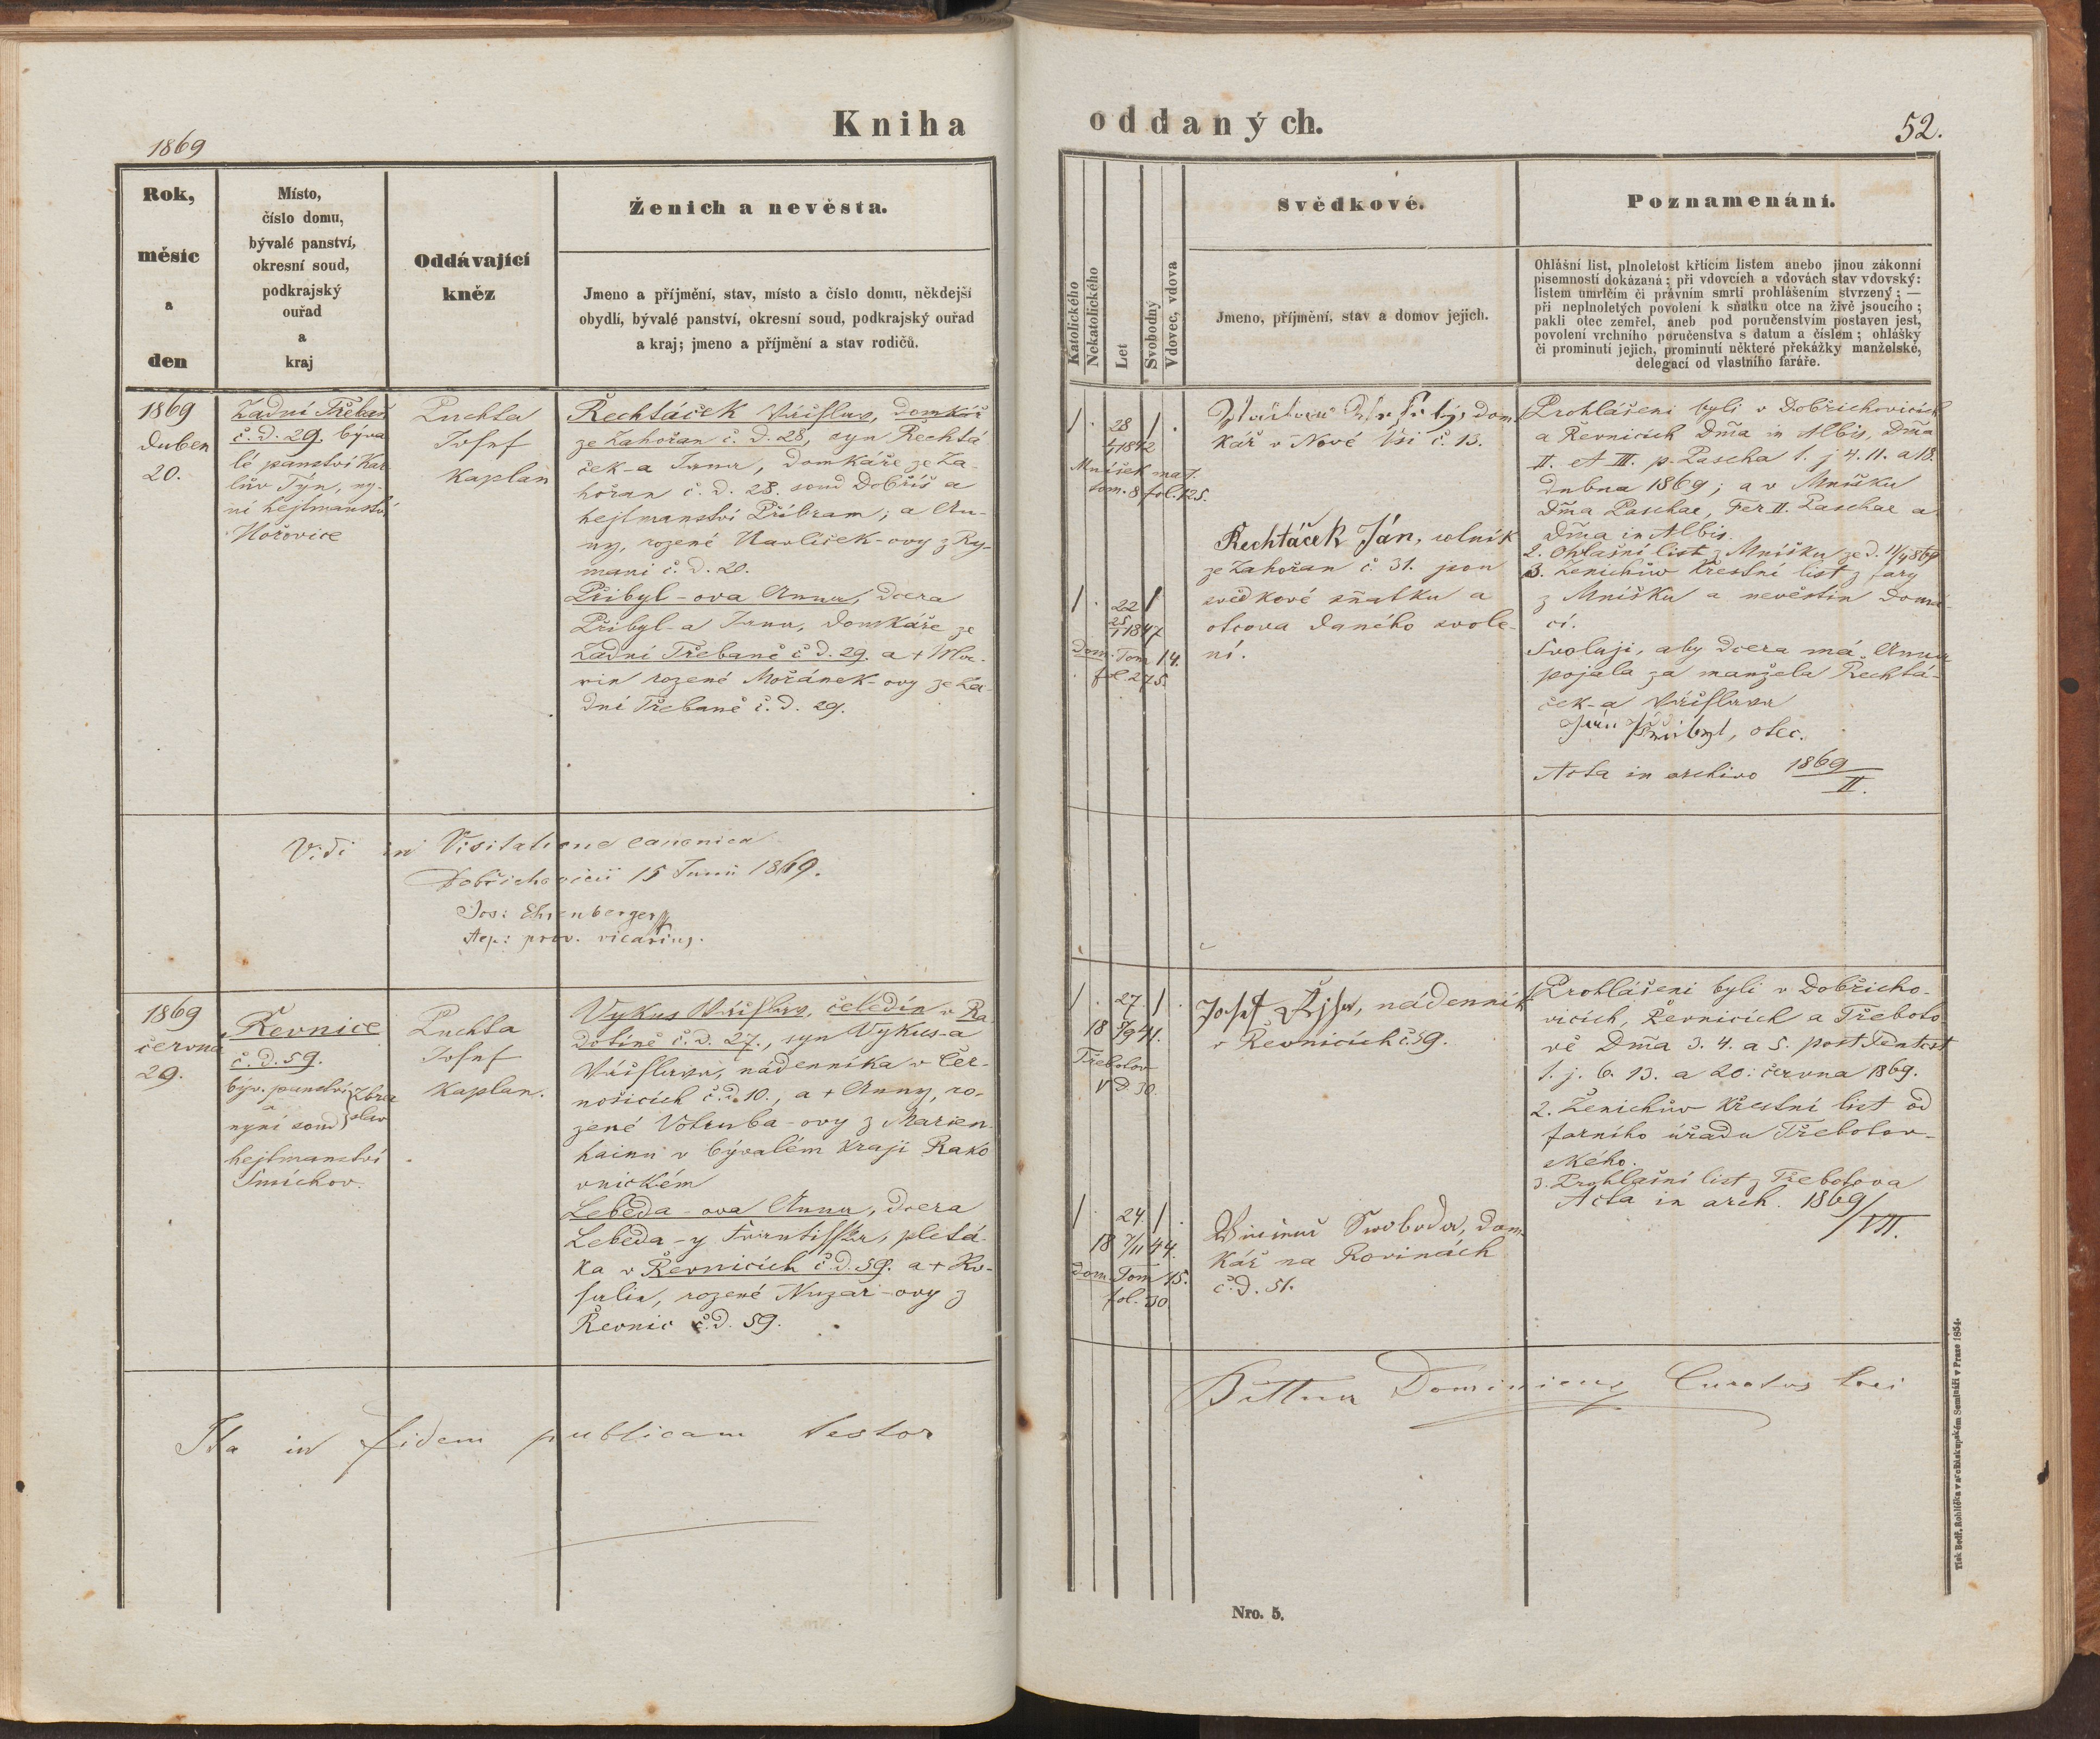 1869
Kniha
Rok,
měsíc
a
den
Místo,
číslo domu,
bývalé panství,
okresní soud,
podkrajský
ouřad
a
kraj
Oddávající
kněz
Ženich a nevěsta.
Jmeno a příjmění, stav, místo a číslo domu, někdejší
obydlí, bývalé panství, okresní soud, podkrajský ouřad
a kraj; jmeno a příjmění a stav rodičů.
1869
Duben
20.
Zadní Třebaň
č. d. 29. býva
lé panství Kar
lův Týn, ny-
ní hejtmanství
Hořovice
Puchta
Josef
Kaplan
Řechtáček Václav, domkář
ze Zahořan č. d. 28, syn Řechtá
ček-a Jana, domkáře ze Za-
hořan č. d. 28. soud Dobříš a
hejtmanství Příbram; a An-
ny, rozené Havlíček-ovy z Ry-
maní č. d. 20.
Přibyl-ova Anna, dcera
Přibyl-a Jana, domkáře ze
Zadní Třebaně č. d. 29. a + Ma-
rie rozené Mořánek-ovy ze Za-
dní Třebaně č. d. 29.
Vidi in Visitatione canonica
Dobřichovicii 15 Junii 1869.
Jos: Ehrenberger
prov. vicarius.
1869
června
29.
Řevnice
č. d. 59.
býv. panství
a
nyní soud
Zbra
slav
hejtmanství
Smíchov.
Puchta
Josef
Kaplan.
Vykus Václav, čeledín v Ra
dotíně č. d. 27., syn Vykus-a
Václava, nádenníka v Čer-
nošicích č. d. 10., a + Anny, ro-
zené Votruba-ovy z Marien-
hainu v bývalém Kraji Rako
vnickém
Lebeda-ova Anna, dcera
Lebeda-y Františka, pletá-
ka v Řevnicích č. d. 59. a + Ro-
salie, rozené Nuzar-ovy z
Řevnic č. d. 59.
Ita in fidem publicam testor
oddaných.
52.
Katolického
Nekatolického
Let
Svobodný
Vdovec, vdova
Svědkové.
Jmeno, příjmění, stav a domov jejich.
Poznamenání.
Ohlášní list, plnoletost křtícím listem anebo jinou zákonní
písemností dokázaná; při vdovcích a vdovách stav vdovský:
listem umrlčím či právním smrti prohlášením stvrzený; —
při neplnoletých povolení k sňatku otce na živě jsoucího;
pakli otec zemřel, aneb pod poručenstvím postaven jest,
povolení vrchního poručenstva s datum a číslem; ohlášky
či prominutí jejich, prominutí některé překážky manželské,
delegací od vlastního faráře.
1 . 28 1 .
1842
Mníšek mat.
tom. 8 fol. 125.
dom
kář v Nové Vsi č. 13.
Řechtáček Ján, rolník
ze Zahořan č. 31. jsou
svědkové sňatku a
otcova daného svole-
ní.
1 . 22 1
25/1 1847
Dom. Tom 14.
fol. 275.
Prohlášeni byli v Dobřichovicích
a Řevnicích Dm̃a in Albis, Dm̃a
II. et III. p. Pascha t. j. 4. 11. a 18.
dubna 1869; a v Mníšku
Dm̃a Paschae, Fer II. Paschae a
Dm̃a in Albis.
2. Ohlašní list z Mníšku ze d. 11/4 869
3. Ženichův křestní list z fary
z Mníšku a nevěstin domá-
cí.
Svoluji, aby dcera má Anna
pojala za manžela Řechtá-
ček-a Václava
Jan Přibyl, otec.
Acta in archivo 1869/II.
1 . 27 1 .
18 5/9 41.
Třebotov
V D. 30.
Josef, nádenník
v Řevnicích č 59.
1 24 1 .
18 7/11 44.
dom. Tom 15.
fol. 30.
Svoboda, dom
kář na Rovinách
č. d. 51.
Prohlášeni byli v Dobřicho-
vicích, Řevnicích a Třeboto
vě Dm̃a 3. 4. a 5. post Pentcst
t. j. 6. 13. a 20. června 1869.
2. Ženichův křestní list od
farního úřadu Třebotov-
ského.
3. Prohlašní list z Třebotova
Acta in arch. 1869/VII.
Bittner Dominicus Curatus loci
Nro. 5.
Tisk Bedř. Rohlíčka v arcibiskupském Semináři v Praze 1854.